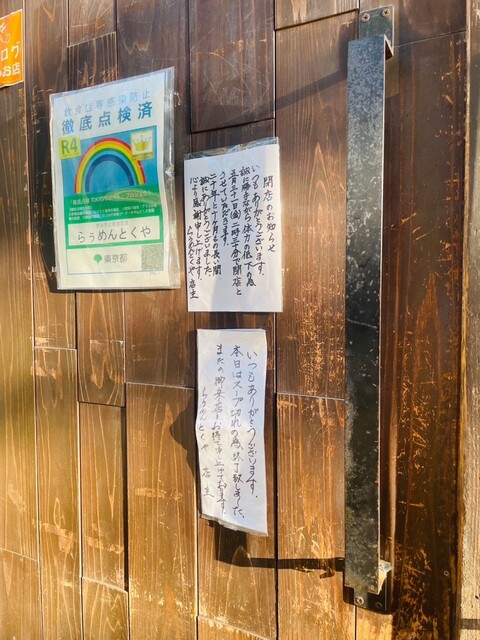 ログ
のお店
飲食店等感染防止
徹底点検済
R4
らぅめんとくや
東京都
閉店のお知らせ
いつもありがとうございます。
誠に勝手ながら体力の低下の為
五月三十一日(金)二時三十分で閉店と
させていただきます。
二十年と十ヶ月もの長い間
誠にありがとうございました
心より感謝申し上げます。
らぅめんとくや 店主
いつもありがとうございます。
本日はスープ切れの為、終了致しました、
またの御来店をお待ち申し上げております。
らぅめんとくや 店主